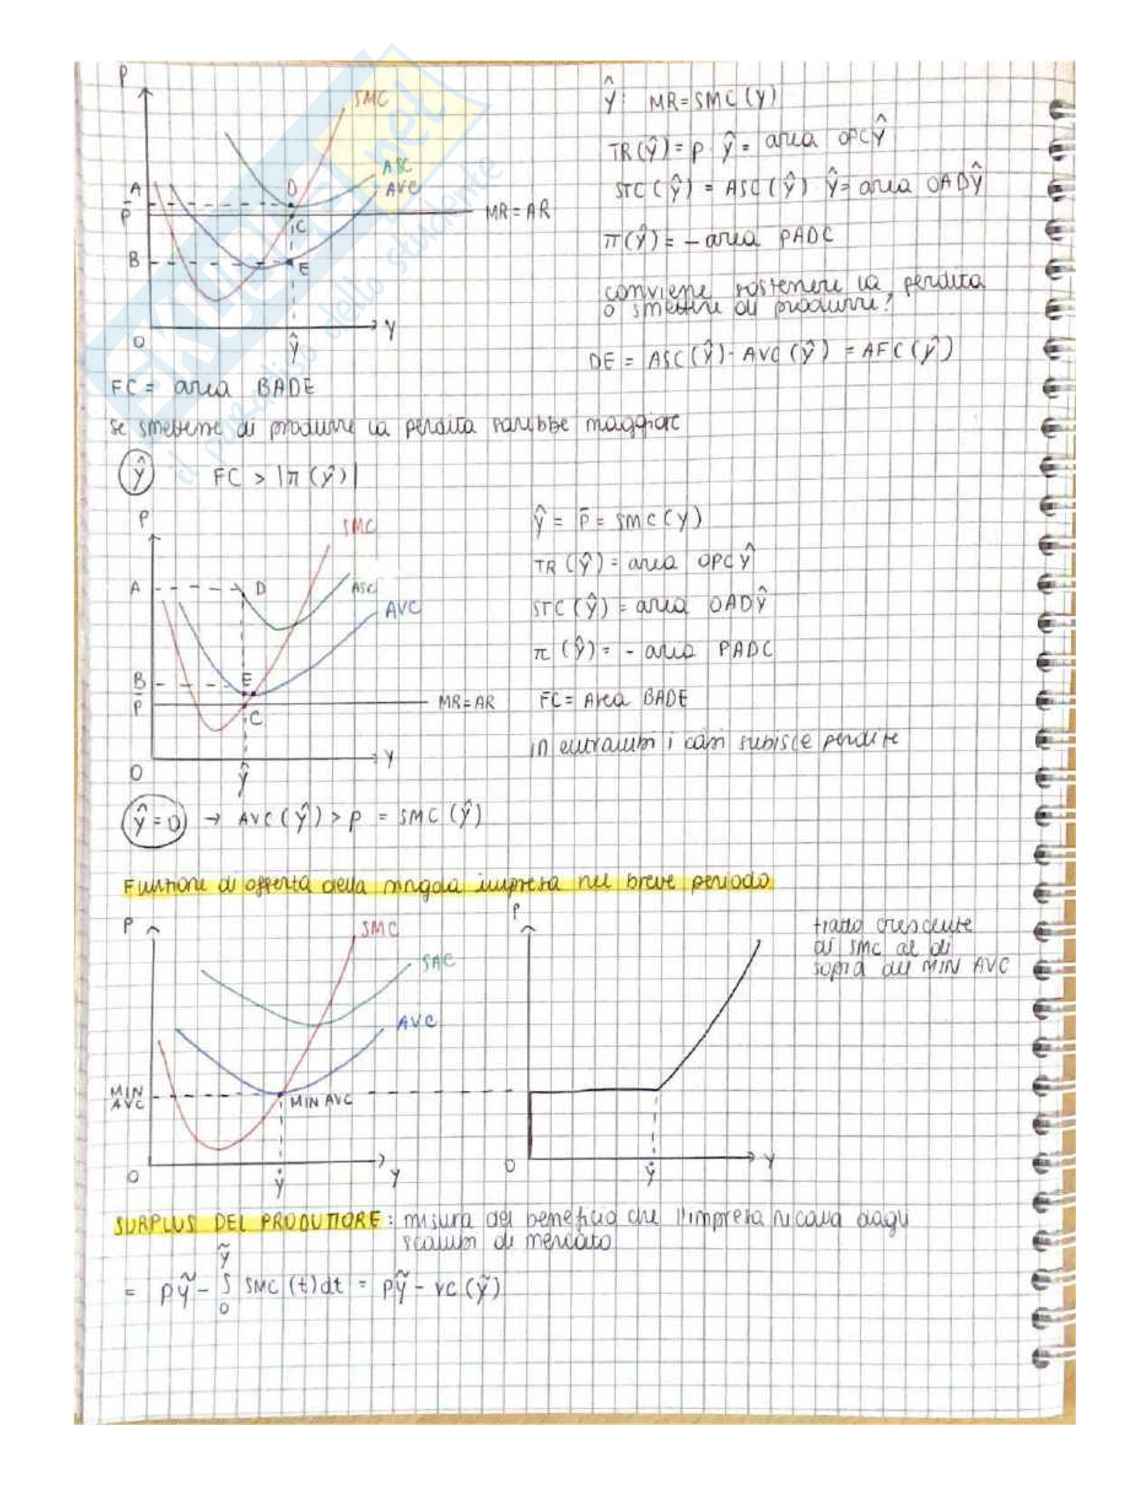 P
SMC
ASC
AVC
A
P̄
B
D
C
E
MR = AR
O
ŷ
y
ŷ: MR = SMC (y)
TR(ŷ) = p · ŷ = area OPCŷ
STC (ŷ) = ASC(ŷ) · ŷ = area OADŷ
π(ŷ) = - area PADC
conviene sostenere la perdita
o smettere di produrre?
DE = ASC(ŷ) - AVC(ŷ) = AFC(ŷ)
FC = area BADE
se smettesse di produrre la perdita sarebbe maggiore
ŷ FC > |π (ŷ)|
P
SMC
ASC
AVC
A
D
B
E
P̄
C
MR = AR
O
ŷ
y
ŷ = p̄ = SMC (y)
TR (ŷ) = area OPCŷ
STC (ŷ) = area OADŷ
π (ŷ) = - area PADC
FC = Area BADE
in entrambi i casi subisce perdite
ŷ = 0 → AVC (ŷ) > p = SMC (ŷ)
Funzione di offerta della singola impresa nel breve periodo
P
SMC
SAC
AVC
MIN
AVC
MIN AVC
O
ẏ
y
P
O
ẏ
y
tratto crescente
di SMC al di
sopra del MIN AVC
SURPLUS DEL PRODUTTORE: misura del beneficio che l'impresa ricava dagli
scambi di mercato
= pỹ - ∫₀^ỹ SMC (t) dt = pỹ - VC (ỹ)